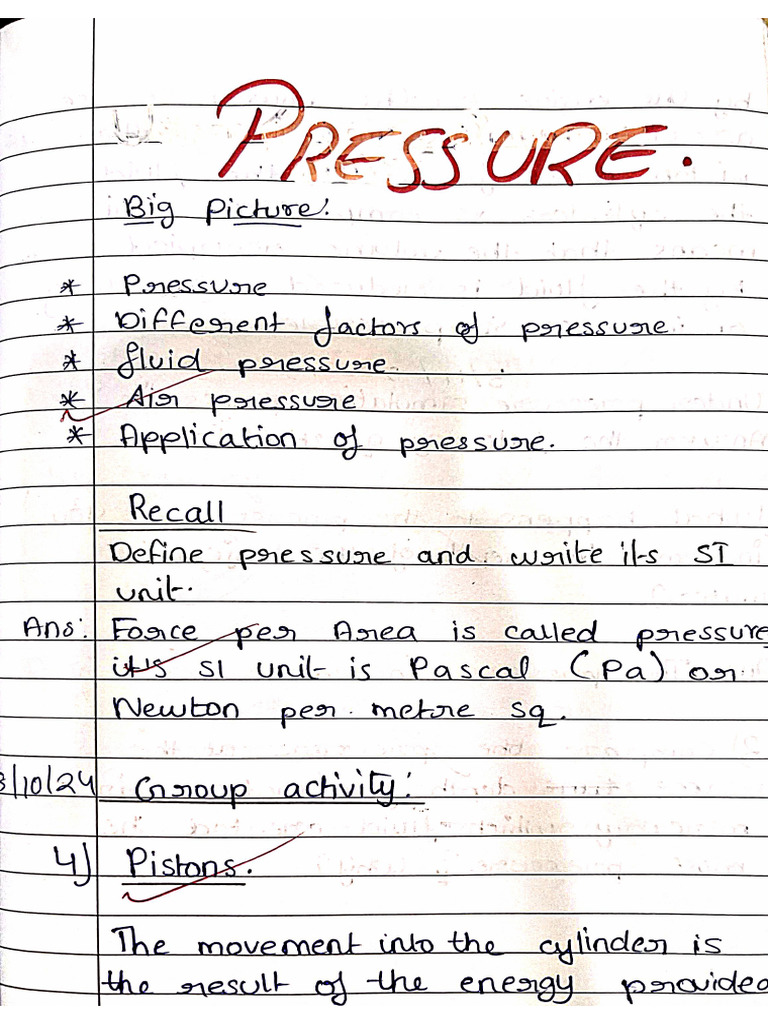 PRESSURE.
Big Picture:
* Pressure
* Different factors of pressure.
* fluid pressure.
* Air pressure
* Application of pressure.
Recall
Define pressure and write its SI
unit.
Ans: Force per Area is called pressure
it's SI unit is Pascal (Pa) or
Newton per metre sq.
3/10/24 Group activity:
4) Pistons.
The movement into the cylinder is
the result of the energy provided